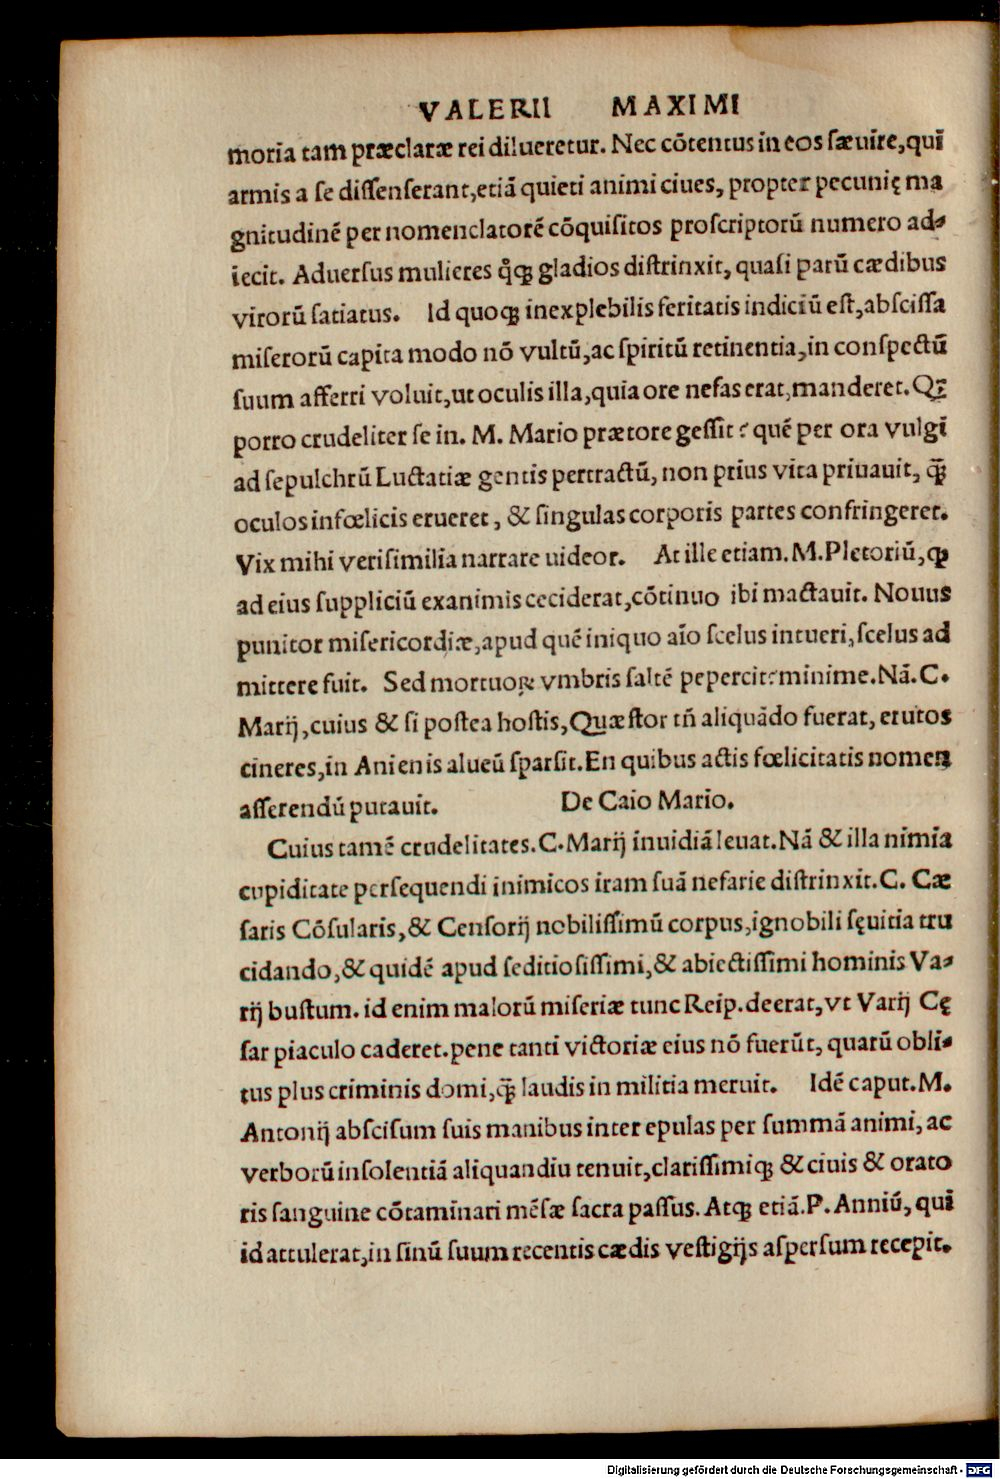 VALERII MAXIMI
moria tam præclaræ rei dilueretur. Nec cõtentus in eos ſæuire,qui
armis a ſe diſſenſerant,etiã quieti animi ciues, propter pecunię ma
gnitudinẽ per nomenclatorẽ cõquiſitos proſcriptorũ numero ad-
iecit. Aduerſus mulieres q̊ꝗ gladios diſtrinxit, quaſi parũ cædibus
virorũ ſatiatus. Id quoꝗ inexplebilis feritatis indiciũ eſt,abſciſſa
miſerorũ capita modo nõ vultũ,ac ſpiritũ retinentia,in conſpectũ
ſuum afferri voluit,ut oculis illa,quia ore nefas erat,manderet. Qꝫ
porro crudeliter ſe in. M. Mario prætore geſſit? quẽ per ora vulgi
ad ſepulchrũ Luctatiæ gentis pertractũ, non prius vita priuauit, ꝗ̃
oculos infœlicis erueret, & ſingulas corporis partes confringeret.
Vix mihi veriſimilia narrare uideor. At ille etiam. M.Pletoriũ, ꝙ
ad eius ſuppliciũ exanimis ceciderat,cõtinuo ibi mactauit. Nouus
punitor miſericordiæ,apud quẽ iniquo aĩo ſcelus intueri,ſcelus ad
mittere fuit. Sed mortuoꝝ vmbris ſaltẽ pepercit? minime.Nã.C.
Marij,cuius & ſi poſtea hoſtis,Quæſtor tñ aliquãdo fuerat, erutos
cineres,in Anienis alueũ ſparſit.En quibus actis fœlicitatis nomen
aſſerendũ putauit. De Caio Mario.
Cuius tamẽ crudelitates.C.Marij inuidiã leuat.Nã & illa nimia
cupiditate perſequendi inimicos iram ſuã nefarie diſtrinxit.C. Cæ
ſaris Cõſularis,& Cenſorij nobiliſſimũ corpus,ignobili ſęuitia tru
cidando,& quidẽ apud ſeditioſiſſimi,& abiectiſſimi hominis Va-
rij buſtum. id enim malorũ miſeriæ tunc Reip.deerat,vt Varij Cę
ſar piaculo caderet.pene tanti victoriæ eius nõ fuerũt, quarũ obli-
tus plus criminis domi,ꝗ̃ laudis in militia meruit. Idẽ caput.M.
Antonij abſciſum ſuis manibus inter epulas per ſummã animi, ac
verborũ inſolentiã aliquandiu tenuit,clariſſimiꝗ & ciuis & orato
ris ſanguine cõtaminari mẽſæ ſacra paſſus. Atꝗ etiã.P. Anniũ, qui
id attulerat,in ſinũ ſuum recentis cædis veſtigijs aſperſum recepit.
Digitalisierung gefördert durch die Deutsche Forschungsgemeinschaft - DFG